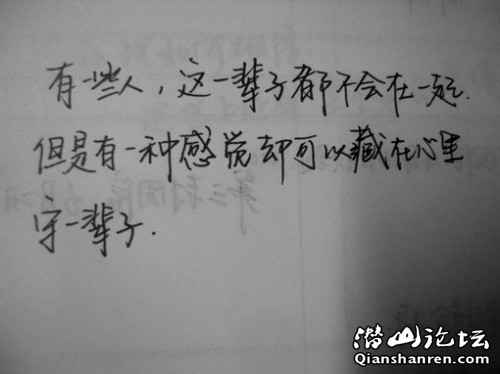 有一些人，这一辈子都不会在一起.
但是有一种感觉却可以藏在心里
守一辈子.
潜山论坛
Qianshanren.com